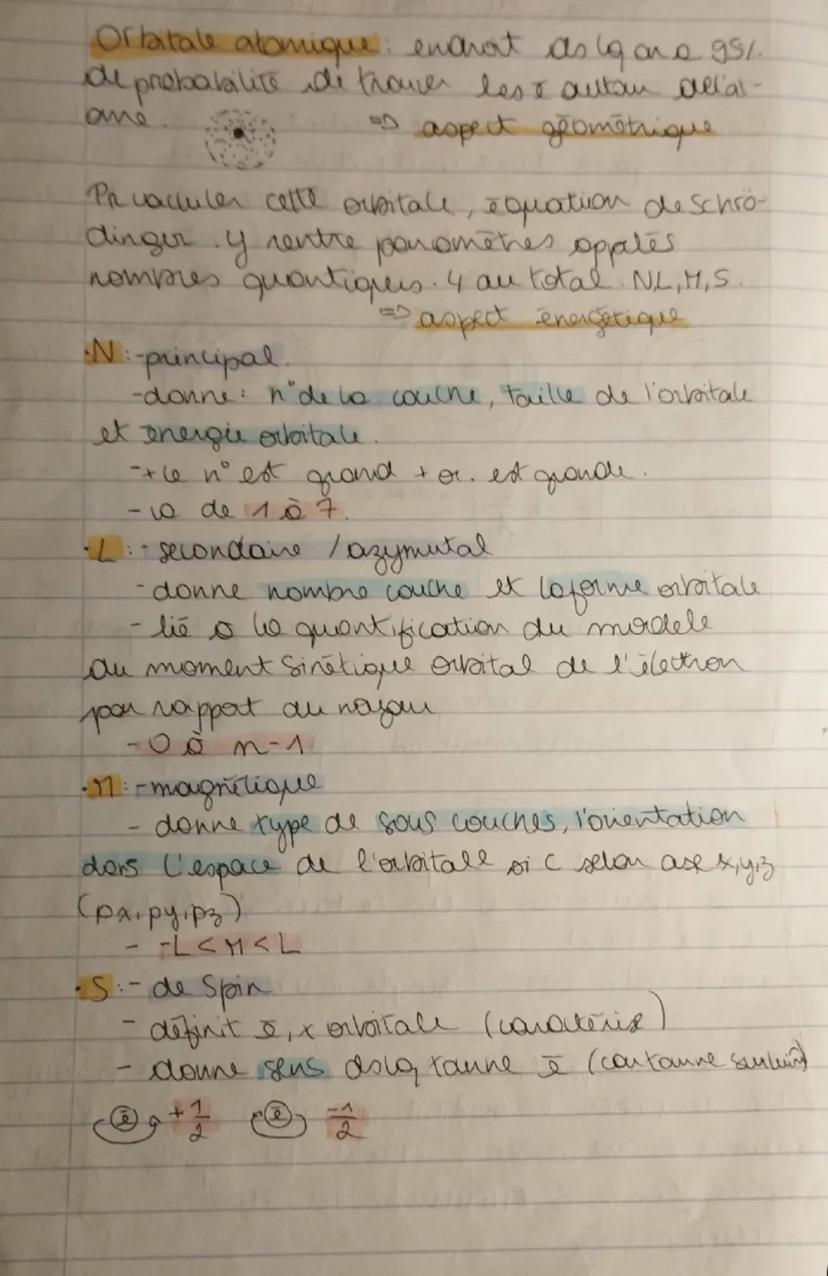 Orbitale atomique : endroit ds lq on a 95%
de probabilité de trouver les ē autour de l'at-
ome.
=> aspect géométrique
Pr calculer cette orbitale, équation de Schrö-
dinger. y rentre paramètres appelés
nombres quantiques. 4 au total. N,L,M,S.
=> aspect énergétique
·N :-principal.
-donne : n° de la couche, taille de l'orbitale
et énergie orbitale.
-+ le n° est grand + or. est grande.
- va de 1 à 7.
·L : - secondaire / azymutal
- donne nombre couche et la forme orbitale
- lié à la quantification du modèle
du moment sinétique orbital de l'électron
par rapport au noyau
- 0 à n-1
·M : -magnétique
- donne type de sous couches, l'orientation
dans l'espace de l'orbitale si c selon axe x,y,z
(px,py,pz)
- -L < M < L
·S :- de Spin
- définit ē, x orbitale (caractérise)
- donne sens ds lq tourne ē (car tourne sur lui m̂)
ē +1/2 ē -1/2